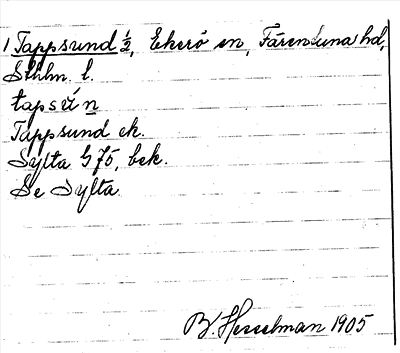 1 Tappsund ½, Ekerö sn, Färentuna hd,
Sthlm. l.
tapsún
Tappsund ek.
Sylta G J B, bek.
Se Sylta.
B. Hesselman 1905